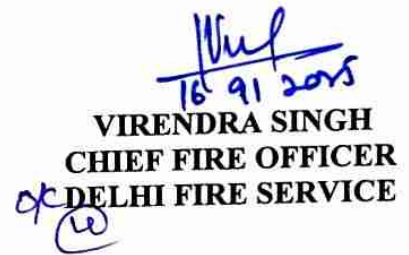 16 91 2025
VIRENDRA SINGH
CHIEF FIRE OFFICER
DELHI FIRE SERVICE